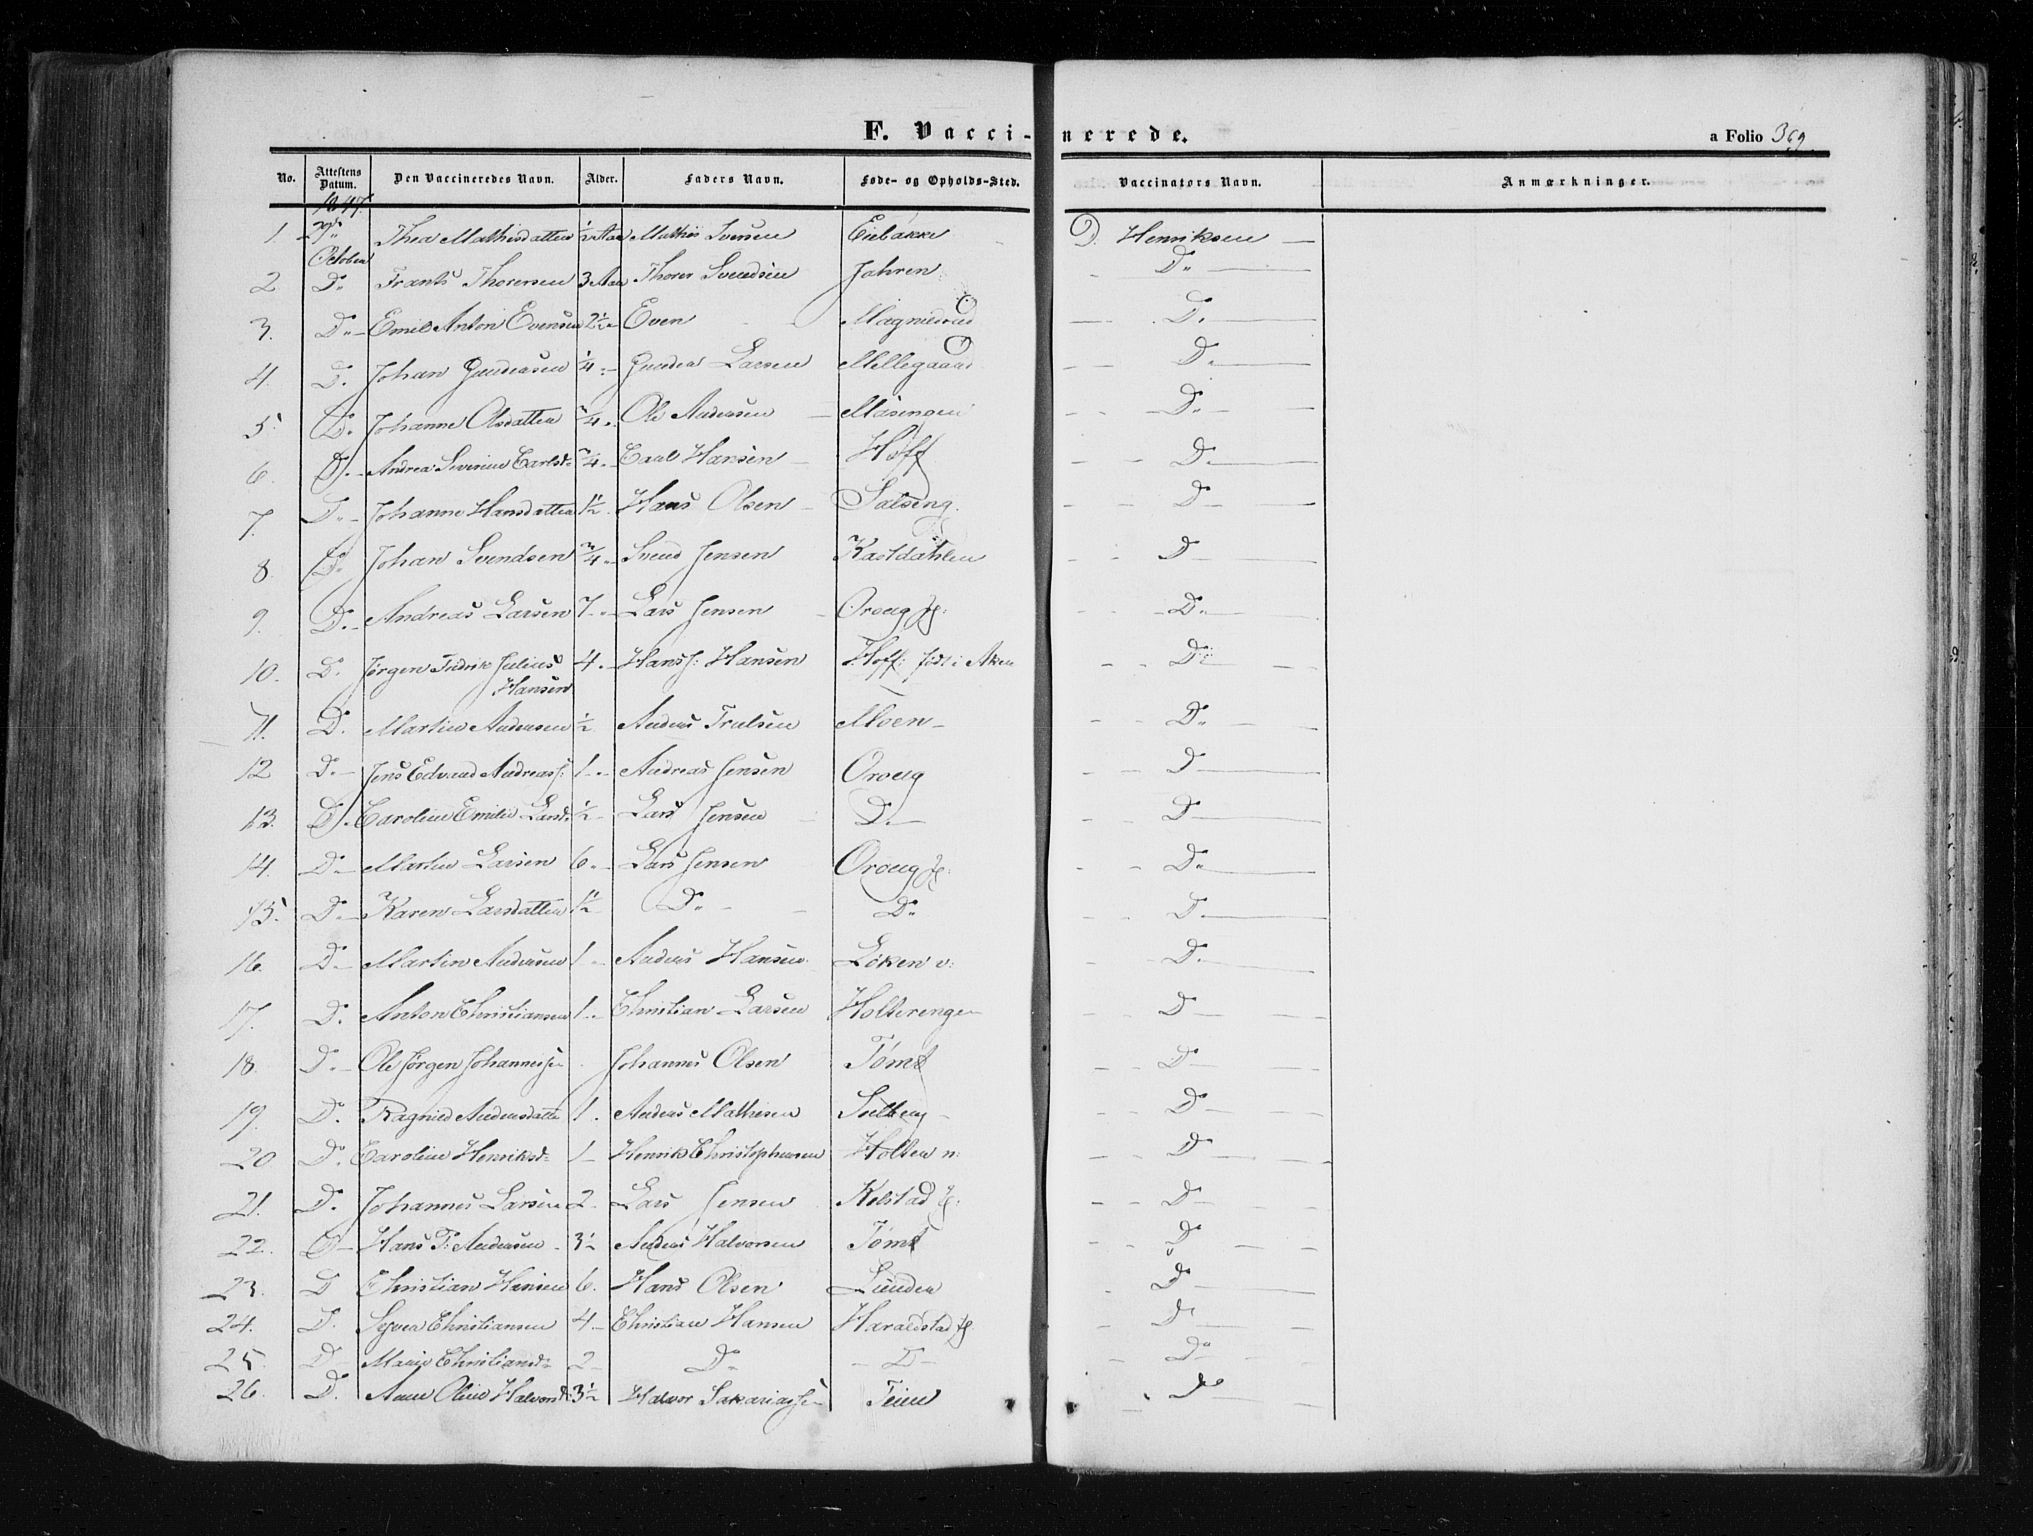 F. Vaccinerede. a Folio 369.
No. Attestens Datum. Den Vaccineredes Navn. Alder. Faders Navn. Føde- og Opholds-Sted. Vaccinators Navn. Anmærkninger.
1847.
1. 29de October Thea Mathisdatter 1/2 Aar Mathis Iversen D. Henriksen
2 Do Frants Thoresen 3 Aar Thorer Svendsen Jahren Do
3. Do Emil Anton Evensen 2 1/2 Even Do
4. Do Johan Gundersen 1/4 Gunder Larsen Mellegaard Do
5. Do Johanne Olsdatter 3/4 Ole Andersen Måsengen Do
6. Do Andrea Severine Carlsd: 3/4 Carl Hansen Hoff Do
7. Do Johanne Hansdatter 1 1/2 Hans Olsen Do
8. Do Johan Svendsen 3/4 Svend Jensen Kastdahlen Do
9. Do Andreas Larsen 7 Lars Jensen Oroug Do
10. Do Jørgen Fredrik Julius Hansen 4 Hans J: Hansen Hoff: født i Aker Do
11. Do Martin Andersen 1/2 Anders Trulsen Moen Do
12 Do Jens Edvard Andreass: 1 Andreas Jensen Oroug Do
13. Do Caroline Emilie Larsd: 1/2 Lars Jensen Do Do
14. Do Martin Larsen 6 Lars Jensen Oroug Do
15. Do Karen Larsdatter 1 1/2 Do Do Do
16. Do Martin Andersen 1 Anders Hansen Løken v: Do
17. Do Anton Christiansen 1 Christian Larsen Holterengen Do
18. Do Ole Jørgen Johannessen Johannes Olsen Tømt Do
19. Do Ragnild Andersdatter 1 Anders Mathisen Solberg Do
20 Do Caroline Henriksd: 1 Henrik Christophersen Holter n: Do
21. Do Johannes Larsen 2 Lars Jensen Kolstad Do
22. Do Hans T: Andersen 3 1/2 Anders Halvorsen Tømt Do
23. Do Christian Hansen 6. Hans Olsen Lunder Do
24. Do Syver Christiansen 4 Christian Hansen Haraldstad Do
25. Do Marie Christiansd: 2 Do Do Do
26. Do Anne Oline Halvorsd: 3 1/2 Halvor Sakariassen Teien Do